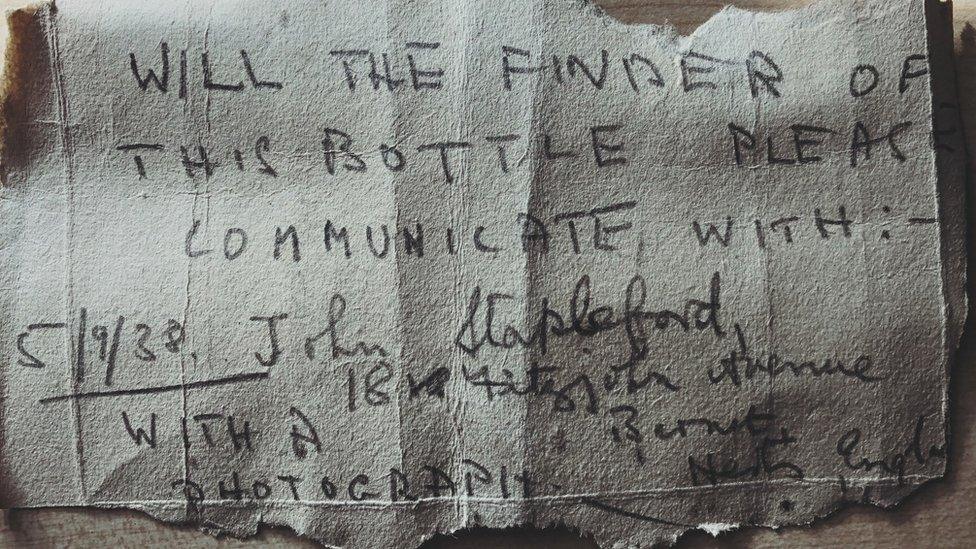 WILL THE FINDER OF
THIS BOTTLE PLEASE
COMMUNICATE WITH:-
5/9/38. John Stapleford,
18 Fitzjohn Avenue
WITH A Barnet
PHOTOGRAPH. Herts Engla